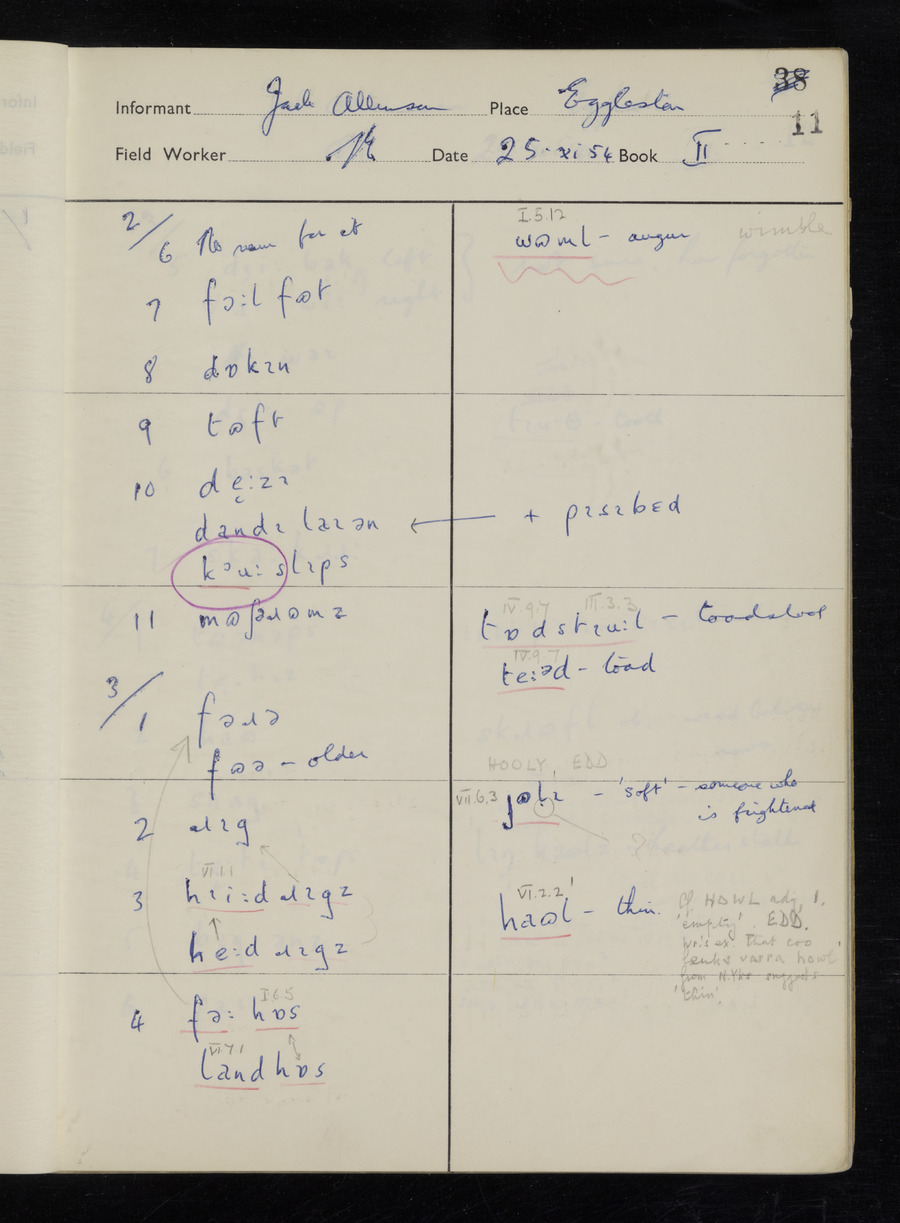 38
Informant Jack Allinson Place Eggleston
11
Field Worker Date 25.xi.54 Book II
2/
6 No name for it
7 fɔ:l fɷt
8 dɒkɪn
9 tɷft
10 de̜:zɪ
dandɪ laɪən ← + pɪsɪbɛd
kᵊu:slɪps
11 mɷʃəɹɷmz
3/
1 fəɹə
fɷə – older
2 ɹɪg
VI.1.1
3 hɪi:d ɹɪgz
he:d ɹɪgz
I.6.5
4 fə: hɒs
VI.7.1
land hɒs
I.5.12
wɷml – augur wimble
IV.9.7 III.3.3
tɒdstɪu:l – toadstool
IV.9.7
te:ᵊd – toad
HOOLY, EDD
VII.6.3 jɷlɪ – 'soft' – someone who
is frightened
VI.2.2
haɷl – thin.
Cf HOWL adj. 1.
'empty'. EDD.
that coo
varra howl'
from N.Yks suggests
'thin'.